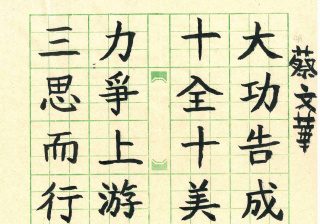 蔡文華
大功告成
十全十美
力爭上游
三思而行